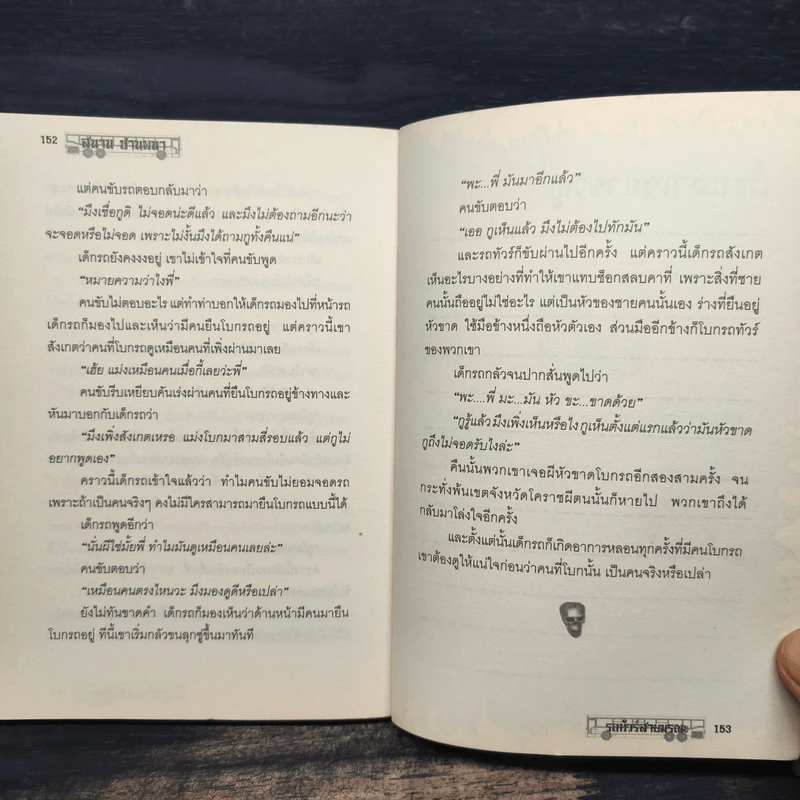 152
แต่คนขับรถตอบกลับมาว่า
“มึงเชื่อกูดิ ไม่จอดน่ะดีแล้ว และมึงไม่ต้องถามอีกนะว่า
จะจอดหรือไม่จอด เพราะไม่งั้นมึงได้ถามกูทั้งคืนแน่”
เด็กรถยังคงงงอยู่ เขาไม่เข้าใจที่คนขับพูด
“หมายความว่าไงพี่”
คนขับไม่ตอบอะไร แต่ทำท่าบอกให้เด็กรถมองไปที่หน้ารถ
เด็กรถก็มองไปและเห็นว่ามีคนยืนโบกรถอยู่ แต่คราวนี้เขา
สังเกตว่าคนที่โบกรถดูเหมือนคนที่เพิ่งผ่านมาเลย
“เฮ้ย แม่งเหมือนคนเมื่อกี้เลยว่ะพี่”
คนขับรีบเหยียบคันเร่งผ่านคนที่ยืนโบกรถอยู่ข้างทางและ
หันมาบอกกับเด็กรถว่า
“มึงเพิ่งสังเกตเหรอ แม่งโบกมาสามสี่รอบแล้ว แต่กูไม่
อยากพูดเอง”
คราวนี้เด็กรถเข้าใจแล้วว่า ทำไมคนขับไม่ยอมจอดรถ
เพราะถ้าเป็นคนจริงๆ คงไม่มีใครสามารถมายืนโบกรถแบบนี้ได้
เด็กรถพูดอีกว่า
“นั่นผีใช่มั้ยพี่ ทำไมมันดูเหมือนคนเลยล่ะ”
คนขับตอบว่า
“เหมือนคนตรงไหนวะ มึงมองดูดีหรือเปล่า”
ยังไม่ทันขาดคำ เด็กรถก็มองเห็นว่าด้านหน้ามีคนมายืน
โบกรถอยู่ ทีนี้เขาเริ่มกลัวขนลุกซู่ขึ้นมาทันที
“พะ...พี่ มันมาอีกแล้ว”
คนขับตอบว่า
“เออ กูเห็นแล้ว มึงไม่ต้องไปทักมัน”
และรถทัวร์ก็ขับผ่านไปอีกครั้ง แต่คราวนี้เด็กรถสังเกต
เห็นอะไรบางอย่างที่ทำให้เขาแทบช็อกสลบคาที่ เพราะสิ่งที่ชาย
คนนั้นถืออยู่ไม่ใช่อะไร แต่เป็นหัวของชายคนนั้นเอง ร่างที่ยืนอยู่
หัวขาด ใช้มือข้างหนึ่งถือหัวตัวเอง ส่วนมืออีกข้างก็โบกรถทัวร์
ของพวกเขา
เด็กรถกลัวจนปากสั่นพูดไปว่า
“พะ....พี่ มะ...มัน หัว ขะ...ขาดด้วย”
“กูรู้แล้วมึงเพิ่งเห็นหรือไง กูเห็นตั้งแต่แรกแล้วว่ามันหัวขาด
กูถึงไม่จอดรับไงล่ะ”
คืนนั้นพวกเขาเจอผีหัวขาดโบกรถอีกสองสามครั้ง จน
กระทั่งพ้นเขตจังหวัดโคราชผีตนนั้นก็หายไป พวกเขาถึงได้
กลับมาโล่งใจอีกครั้ง
และตั้งแต่นั้นเด็กรถก็เกิดอาการหลอนทุกครั้งที่มีคนโบกรถ
เขาต้องดูให้แน่ใจก่อนว่าคนที่โบกนั้น เป็นคนจริงหรือเปล่า
รถทัวร์สายมรณะ 153